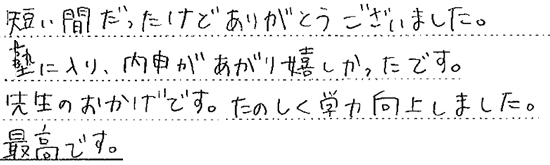 短い間だったけどありがとうございました。
塾に入り、内申があがり嬉しかったです。
先生のおかげです。たのしく学力向上しました。
最高です。